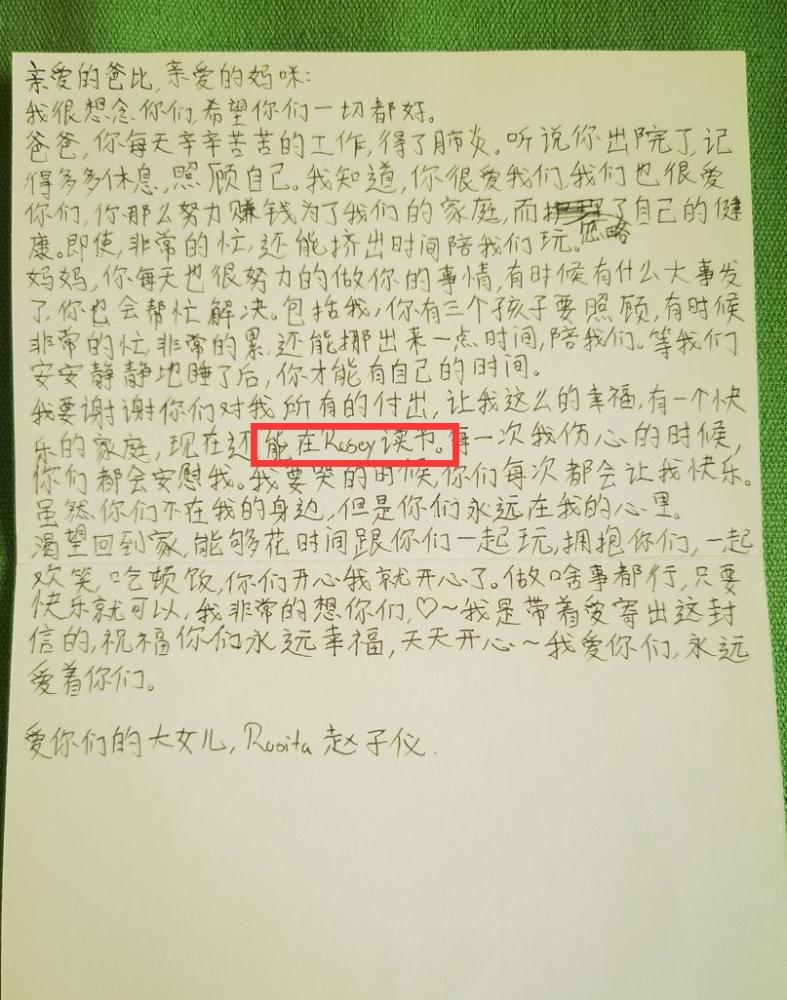 亲爱的爸比,亲爱的妈咪:
我很想念你们,希望你们一切都好。
爸爸,你每天辛辛苦苦的工作,得了肺炎。听说你出院了,记
得多多休息,照顾自己。我知道,你很爱我们,我们也很爱
你们,你那么努力赚钱为了我们的家庭,而忽略了自己的健
康。即使,非常的忙,还能挤出时间陪我们玩。
妈妈,你每天也很努力的做你的事情,有时候有什么大事发
了,你也会帮忙解决。包括我,你有三个孩子要照顾,有时候
非常的忙,非常的累,还能挪出来一点时间,陪我们。等我们
安安静静地睡了后,你才能有自己的时间。
我要谢谢你们对我所有的付出,让我这么的幸福,有一个快
乐的家庭,现在还能在Rosey读书。每一次我伤心的时候,
你们都会安慰我。我要哭的时候,你们每次都会让我快乐。
虽然你们不在我的身边,但是你们永远在我的心里。
渴望回到家,能够花时间跟你们一起玩,拥抱你们,一起
欢笑,吃顿饭,你们开心我就开心了。做啥事都行,只要
快乐就可以,我非常的想你们,♡~我是带着爱寄出这封
信的,祝福你们永远幸福,天天开心~我爱你们,永远
爱着你们。
爱你们的大女儿,Rosita 赵子仪.